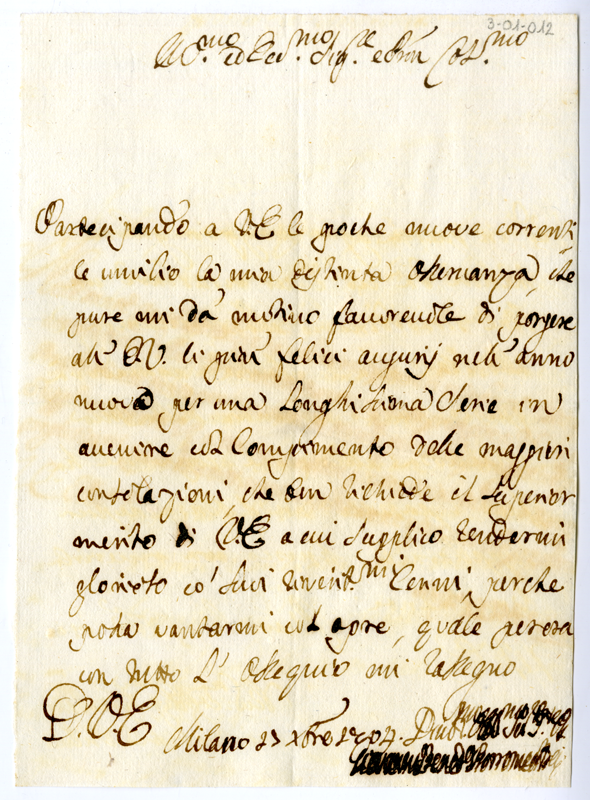 3-01-012
Ill.mo ed Ecc.mo Sig.re e Pron Col.mo
Partecipando a V.E. le poche nuove correnti
le umilio la mia distinta osservanza, che
pure mi dà motivo favorevole di porgere
all' E.V. li più felici augurij nell' anno
nuovo per una longhissima serie in
avvenire col compimento delle maggiori
consolazioni, che ben richiede il superior
merito di V.E. a cui supplico rendermi
glorioso co' suoi riverit.mi cenni, perche
possa vantarmi col opre, quale per ora
con tutto l' ossequio mi rassegno
D. V. E.
Milano 23 Xbre 1704.